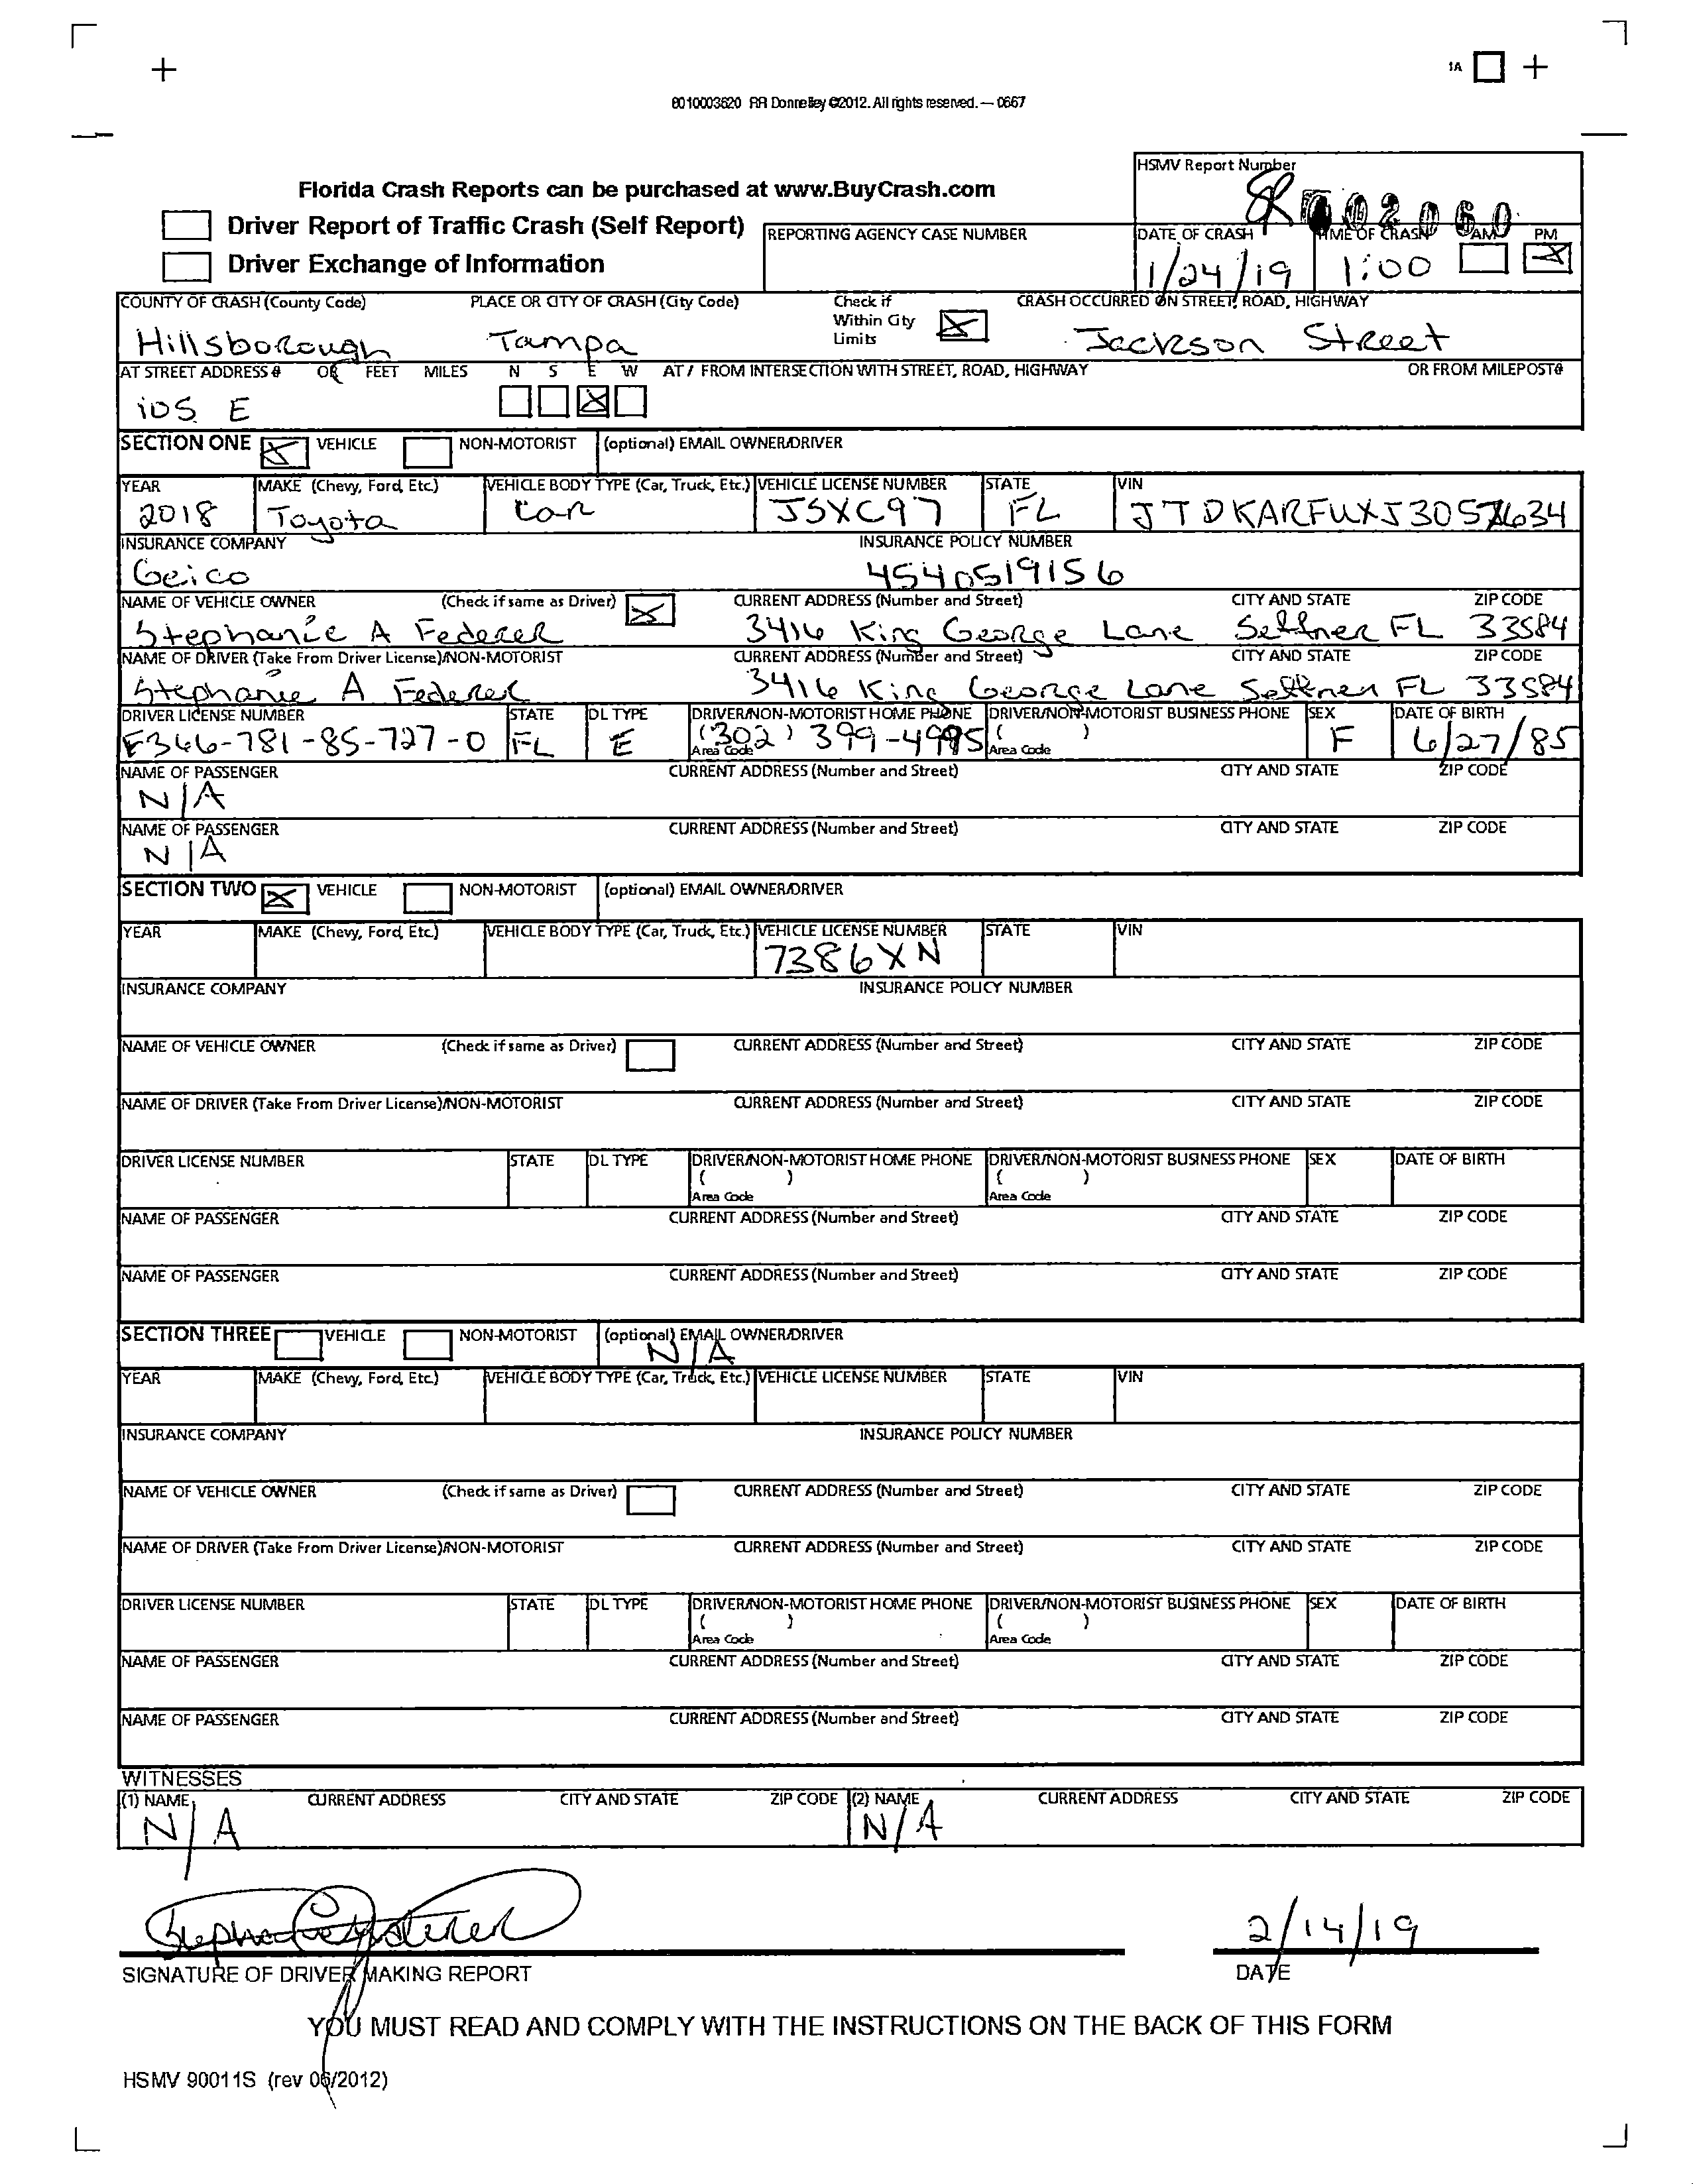 1A
8010003620 RR Donnelley ©2012. All rights reserved. — 0667
HSMV Report Number
Florida Crash Reports can be purchased at www.BuyCrash.com
Driver Report of Traffic Crash (Self Report)
REPORTING AGENCY CASE NUMBER
DATE OF CRASH TIME OF CRASH AM PM
1/24/19 1:00
Driver Exchange of Information
COUNTY OF CRASH (County Code) PLACE OR CITY OF CRASH (City Code) Check if Within City Limits CRASH OCCURRED ON STREET, ROAD, HIGHWAY
Hillsborough Tampa Jackson Street
AT STREET ADDRESS # OR FEET MILES N S E W AT / FROM INTERSECTION WITH STREET, ROAD, HIGHWAY OR FROM MILEPOST#
105 E
SECTION ONE VEHICLE NON-MOTORIST (optional) EMAIL OWNER/DRIVER
YEAR MAKE (Chevy, Ford, Etc.) VEHICLE BODY TYPE (Car, Truck, Etc.) VEHICLE LICENSE NUMBER STATE VIN
2018 Toyota Car JSXC97 FL
INSURANCE COMPANY INSURANCE POLICY NUMBER
Geico 4540519156
NAME OF VEHICLE OWNER (Check if same as Driver) CURRENT ADDRESS (Number and Street) CITY AND STATE ZIP CODE
Stephanie A Federer 3416 King George Lane Seffner FL 33584
NAME OF DRIVER (Take From Driver License)/NON-MOTORIST CURRENT ADDRESS (Number and Street) CITY AND STATE ZIP CODE
Stephanie A Federer 3416 King George Lane Seffner FL 33584
DRIVER LICENSE NUMBER STATE DL TYPE DRIVER/NON-MOTORIST HOME PHONE DRIVER/NON-MOTORIST BUSINESS PHONE SEX DATE OF BIRTH
F366-781-85-727-0 FL E (302) 399-4995 ( ) F 6/27/85
Area Code Area Code
NAME OF PASSENGER CURRENT ADDRESS (Number and Street) CITY AND STATE ZIP CODE
N/A
NAME OF PASSENGER CURRENT ADDRESS (Number and Street) CITY AND STATE ZIP CODE
N/A
SECTION TWO VEHICLE NON-MOTORIST (optional) EMAIL OWNER/DRIVER
YEAR MAKE (Chevy, Ford, Etc.) VEHICLE BODY TYPE (Car, Truck, Etc.) VEHICLE LICENSE NUMBER STATE VIN
7386XN
INSURANCE COMPANY INSURANCE POLICY NUMBER
NAME OF VEHICLE OWNER (Check if same as Driver) CURRENT ADDRESS (Number and Street) CITY AND STATE ZIP CODE
NAME OF DRIVER (Take From Driver License)/NON-MOTORIST CURRENT ADDRESS (Number and Street) CITY AND STATE ZIP CODE
DRIVER LICENSE NUMBER STATE DL TYPE DRIVER/NON-MOTORIST HOME PHONE DRIVER/NON-MOTORIST BUSINESS PHONE SEX DATE OF BIRTH
( ) ( )
Area Code Area Code
NAME OF PASSENGER CURRENT ADDRESS (Number and Street) CITY AND STATE ZIP CODE
NAME OF PASSENGER CURRENT ADDRESS (Number and Street) CITY AND STATE ZIP CODE
SECTION THREE VEHICLE NON-MOTORIST (optional) EMAIL OWNER/DRIVER
N/A
YEAR MAKE (Chevy, Ford, Etc.) VEHICLE BODY TYPE (Car, Truck, Etc.) VEHICLE LICENSE NUMBER STATE VIN
INSURANCE COMPANY INSURANCE POLICY NUMBER
NAME OF VEHICLE OWNER (Check if same as Driver) CURRENT ADDRESS (Number and Street) CITY AND STATE ZIP CODE
NAME OF DRIVER (Take From Driver License)/NON-MOTORIST CURRENT ADDRESS (Number and Street) CITY AND STATE ZIP CODE
DRIVER LICENSE NUMBER STATE DL TYPE DRIVER/NON-MOTORIST HOME PHONE DRIVER/NON-MOTORIST BUSINESS PHONE SEX DATE OF BIRTH
( ) ( )
Area Code Area Code
NAME OF PASSENGER CURRENT ADDRESS (Number and Street) CITY AND STATE ZIP CODE
NAME OF PASSENGER CURRENT ADDRESS (Number and Street) CITY AND STATE ZIP CODE
WITNESSES
(1) NAME CURRENT ADDRESS CITY AND STATE ZIP CODE (2) NAME CURRENT ADDRESS CITY AND STATE ZIP CODE
N/A N/A
2/14/19
SIGNATURE OF DRIVER MAKING REPORT DATE
YOU MUST READ AND COMPLY WITH THE INSTRUCTIONS ON THE BACK OF THIS FORM
HSMV 90011S (rev 06/2012)